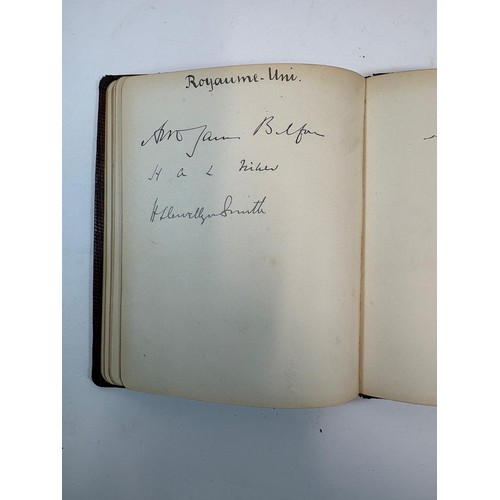 Royaume-Uni.
Arth James Balfour
H A L Fisher
H Llewellyn Smith